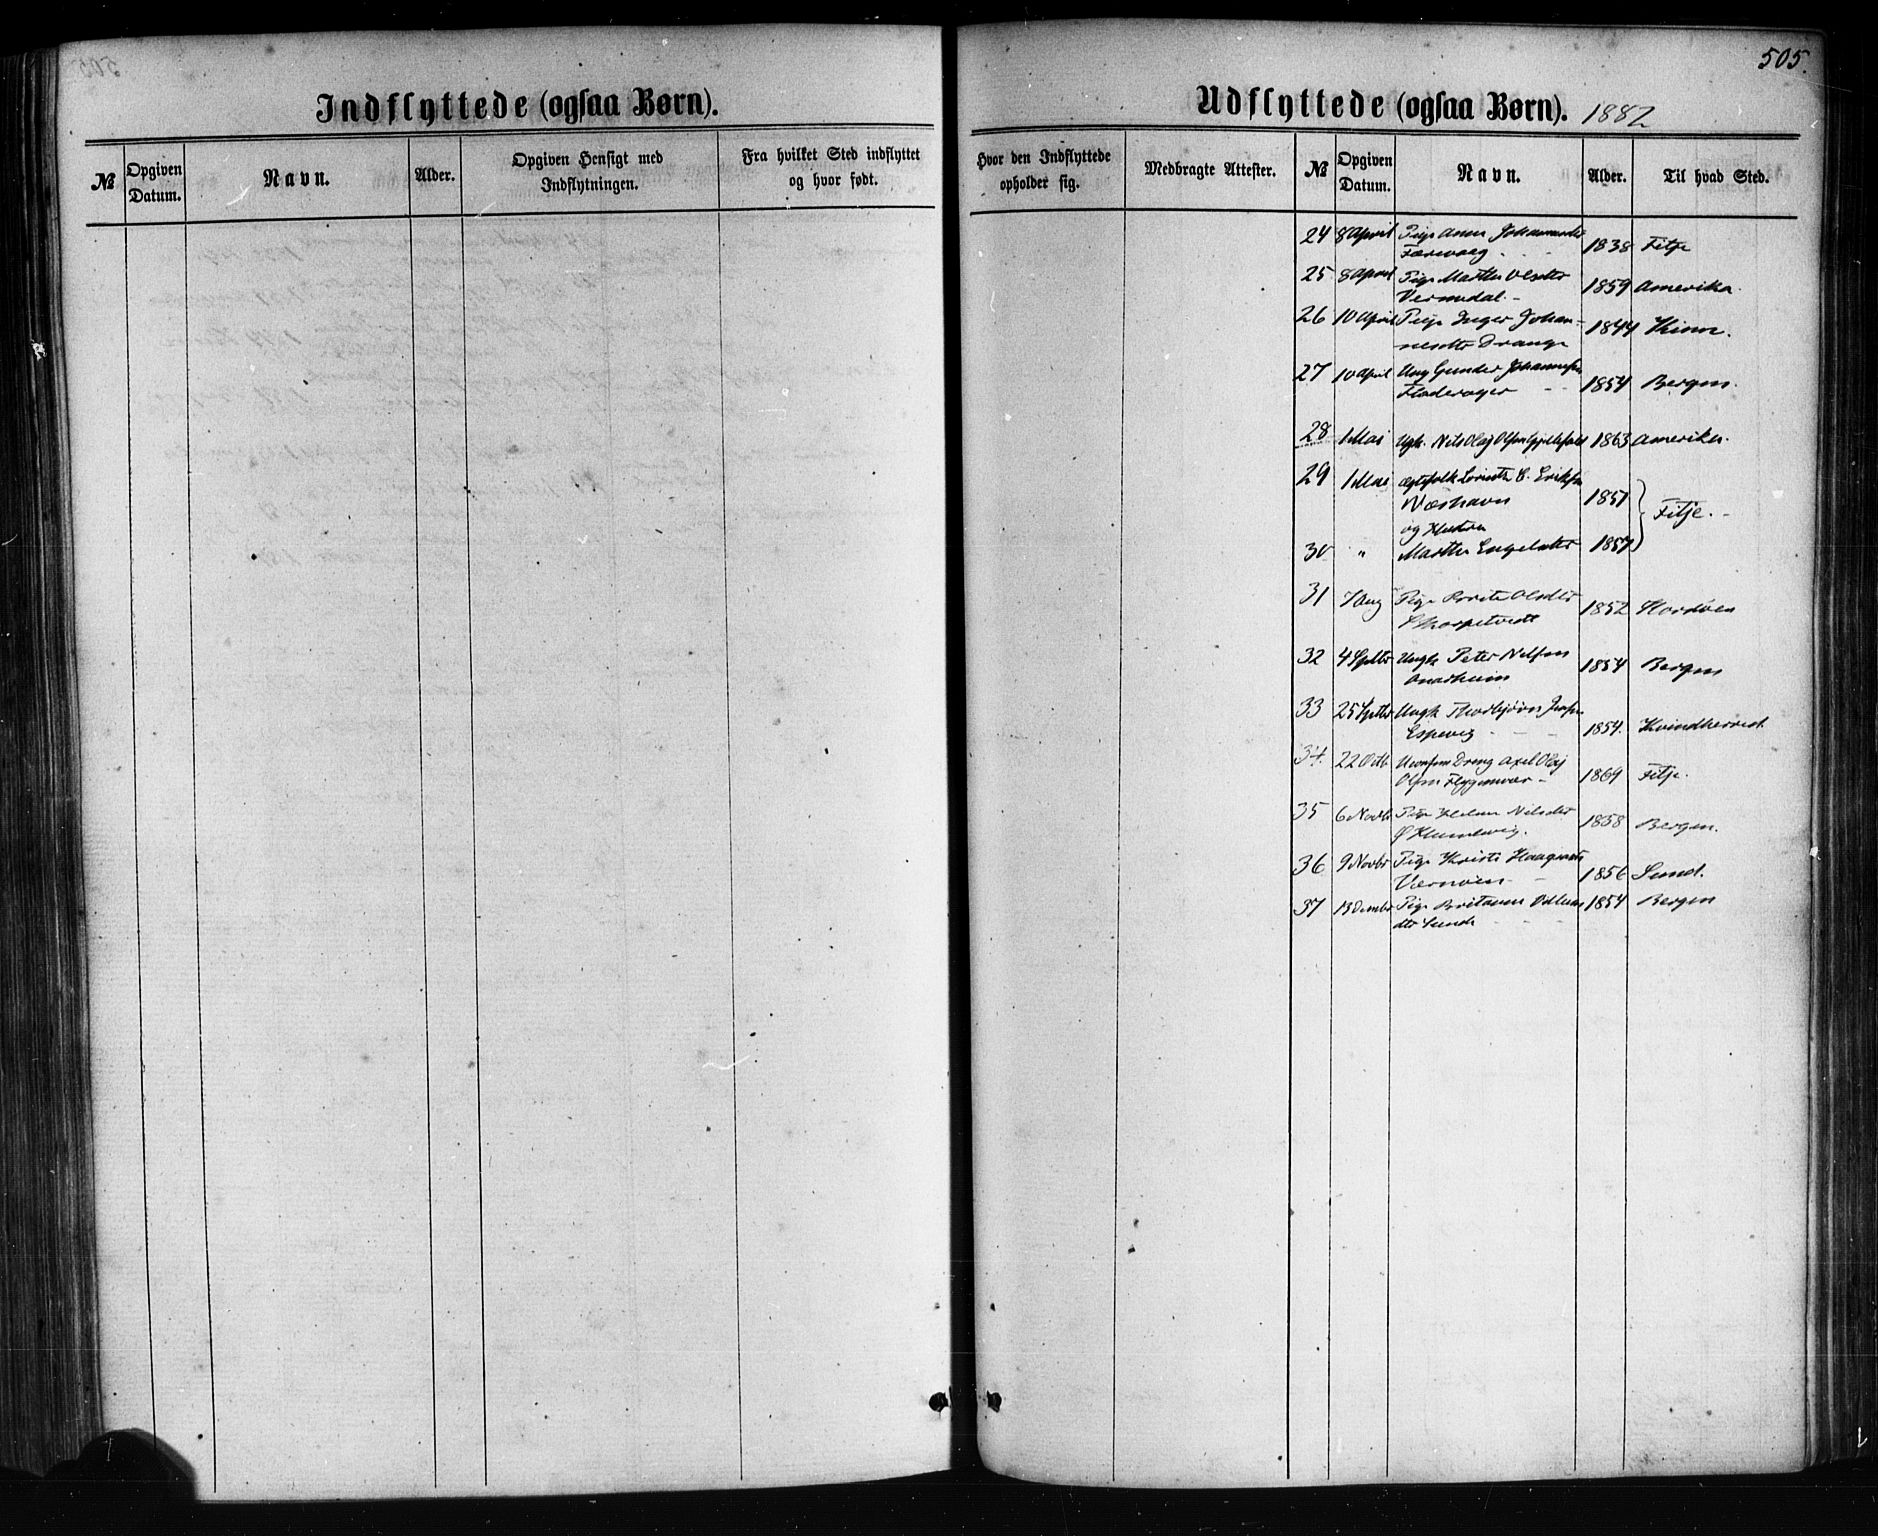 505.
Indflyttede (ogsaa Børn).
Udflyttede (ogsaa Børn). 1882
№ Opgiven Datum. Navn. Alder. Opgiven Hensigt med Indflytningen. Fra hvilket Sted indflyttet og hvor født.
Hvor den Indflyttede opholder sig. Medbragte Attester. № Opgiven Datum. Navn. Alder. Til hvad Sted.
24 8 April Pige Anna Johannesdtr
1838 Fitje
25 8 April Pige Marthe Olsdtr
Vermedal 1859 Amerika.
26 10 April Pige Inger Johan-
nesdtr Drange 1844 Kinn.
27 10 April Ung Gunder Johannesen
1854 Bergen.
28 1 Mai Ungk. Nils Olaj Olsen 1863 Amerika.
29 1 Mai Ægtefolk E. Eriksen
Næshavn 1857
og Hustru Fitje.
30 " Marthe Engelsdtr 1857
31 7 Aug Pige Brite Olsdtr
1852 Hordøen
32 4 Septbr Ungk Peter Nilsen
1854 Bergen
33 25 Septbr Ungk Thorbjørn
Espevig 1854. Kvindherred.
34. 22 Octb Ukonfirm Dreng Axel Olaj
Olsen Flyggansvær 1869 Fitje.
35 6 Novbr Pige Helene Nilsdtr
Ø Humlevig. 1858 Bergen.
36 9 Novbr Pige Kristi Haagensdtr
Værnøen 1856 Sund.
37 13 Decmbr Pige Britanna
dtr Sunde 1854 Bergen